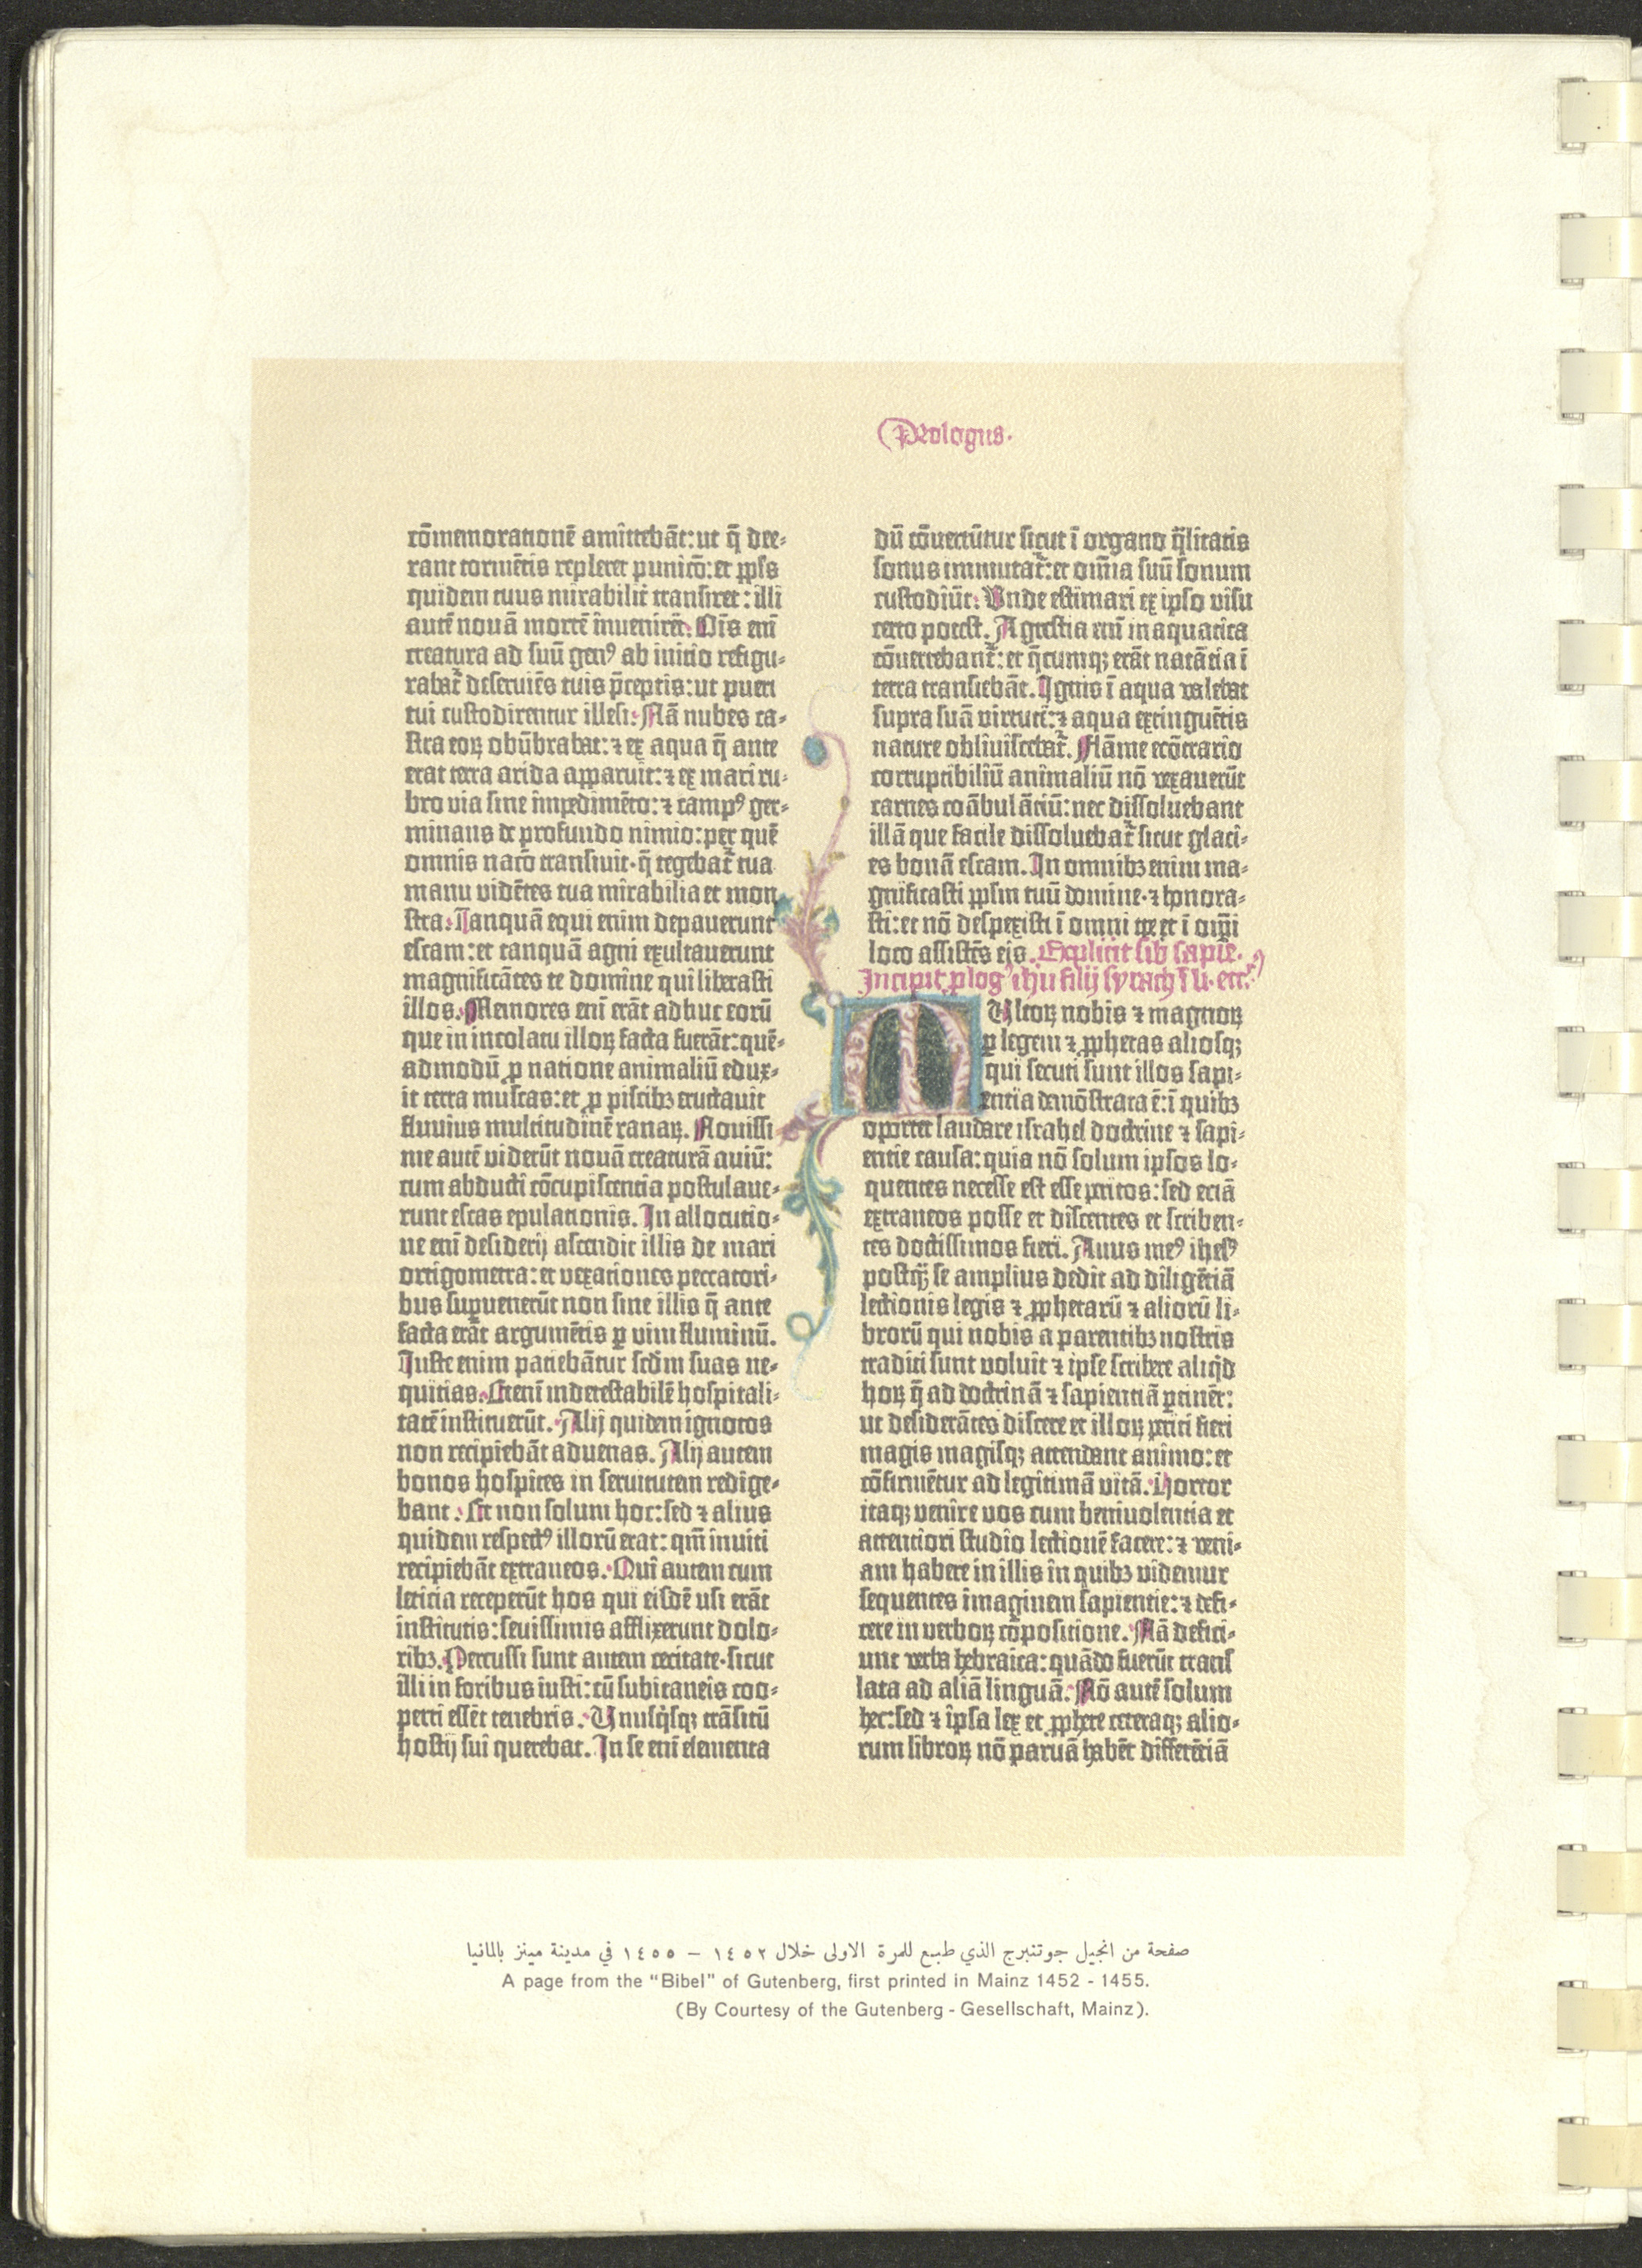 Prologus.
cōmemorationē amittebāt: ut q̄ dee-
rant tormētis repleret punicō: et ꝓpls
quidem tuus mirabilit̄ transiret: illi
autē nouā mortē inuenirēt. Oīs em̄
creatura ad suū genꝰ ab initio refigu-
rabat̄ deseruiēs tuis p̄ceptis: ut pueri
tui custodirentur illesi. Nā nubes ca-
stra eoꝝ obūbrabat: ⁊ ex aqua q̄ ante
erat terra arida apparuit: ⁊ ex mari ru-
bro via sine impedimēto: ⁊ campꝰ ger-
minans de profundo nimio: per quē
omnis nacō transiuit· q̄ tegebat̄ tua
manu vidētes tua mirabilia et mon
stra. Tanquā equi enim depauerunt
escam: et tanquā agni exultauerunt
magnificātes te domine qui liberasti
illos. Memores em̄ erāt adhuc eorū
que in incolatu illoꝝ facta fuerāt: quē-
admodū ꝓ natione animaliū edux-
it terra muscas: et ꝓ piscibꝫ eructauit
fluuius multitudinē ranaꝝ. Nouissi
me autē viderūt nouā creaturā auiū:
cum abducti cōcupiscentia postulaue-
runt escas epulationis. In allocutio-
ne em̄ desiderij ascendit illis de mari
ortigometra: et vexationes peccatori-
bus supuenerūt non sine illis q̄ ante
facta erāt argumētis ꝑ vim fluminū.
Juste enim patiebātur scdm̄ suas ne-
quitias. Etem̄ indetestabilē hospitali-
tatē instituerūt. Alij quidem ignotos
non recipiebāt aduenas. Alij autem
bonos hospites in seruitutem redige-
bant. Et non solum hoc: sed ⁊ alius
quidem respectꝰ illorū erat: qm̄ inuiti
recipiebāt extraneos. Qui autem cum
leticia receperūt hos qui eisdē usi erāt
institutis: seuissimis afflixerunt dolo-
ribꝫ. Percussi sunt autem cecitate· sicut
illi in foribus iusti: cū subitaneis coo-
perti essēt tenebris. Unusq̇sqꝫ trāsitū
hostij sui querebat. In se em̄ elementa
dū cōuertūtur sicut ī organo q̄litatis
sonus immutat̄: et om̄ia suū sonum
custodiūt: Unde estimari ex ipso visu
certo potest. Agrestia em̄ in aquatica
cōuertebant̄: et q̄cumqꝫ erāt natātia ī
terra transiebāt. Ignis ī aqua valebat
supra suā virtutē: ⁊ aqua extinguētis
nature obliuiscebat̄. Flāme ecōtrario
corruptibiliū animaliū nō vexauerūt
carnes coābulātiū: nec dissoluebant
illā que facile dissoluebat̄ sicut glaci-
es bonā escam. In omnibꝫ enim ma-
gnificasti ꝓplm tuū domine· ⁊ honora-
sti: et nō despexisti ī omni tꝑe et ī om̄i
loco assistēs eis. Explicit lib sapiē.
Incipit ꝓlogꝰ ihū filij syrach
MUltoꝝ nobis ⁊ magnoꝝ
ꝑ legem ⁊ ꝓphetas aliosqꝫ
qui secuti sunt illos sapi-
entia demōstrata ē: ī quibꝫ
oportet laudare israhel doctrine ⁊ sapi-
entie causa: quia nō solum ipsos lo-
quentes necesse est esse ꝑitos: sed eciā
extraneos posse et discentes et scriben-
tes doctissimos fieri. Auus meꝰ ihesꝰ
postq̄ꝫ se amplius dedit ad diligētiā
lectionis legis ⁊ ꝓphetarū ⁊ aliorū li-
brorū qui nobis a parentibꝫ nostris
traditi sunt voluit ⁊ ipse scribere aliq̇d
hoꝝ q̄ ad doctrinā ⁊ sapientiā ꝑtinēt:
ut desiderātes discere et illoꝝ ꝑiti fieri
magis magisqꝫ attendant animo: et
cōfirmētur ad legitimā vitā. Hortor
itaqꝫ venire vos cum beniuolentia et
attentiori studio lectionē facere: ⁊ veni-
am habere in illis in quibꝫ videmur
sequentes imaginem sapientie: ⁊ defi-
cere in verboꝝ cōpositione. Nā defici-
unt verba hebraica: quādo fuerūt trans
lata ad aliā linguā. Nō autē solum
hec: sed ⁊ ipsa lex et ꝓphete ceteraqꝫ alio-
rum libroꝝ nō paruā habēt differētiā
صفحة من انجيل جوتنبرج الذي طبع للمرة الاولى خلال ١٤٥٢ – ١٤٥٥ في مدينة مينز بالمانيا
A page from the "Bibel" of Gutenberg, first printed in Mainz 1452 - 1455.
(By Courtesy of the Gutenberg - Gesellschaft, Mainz).